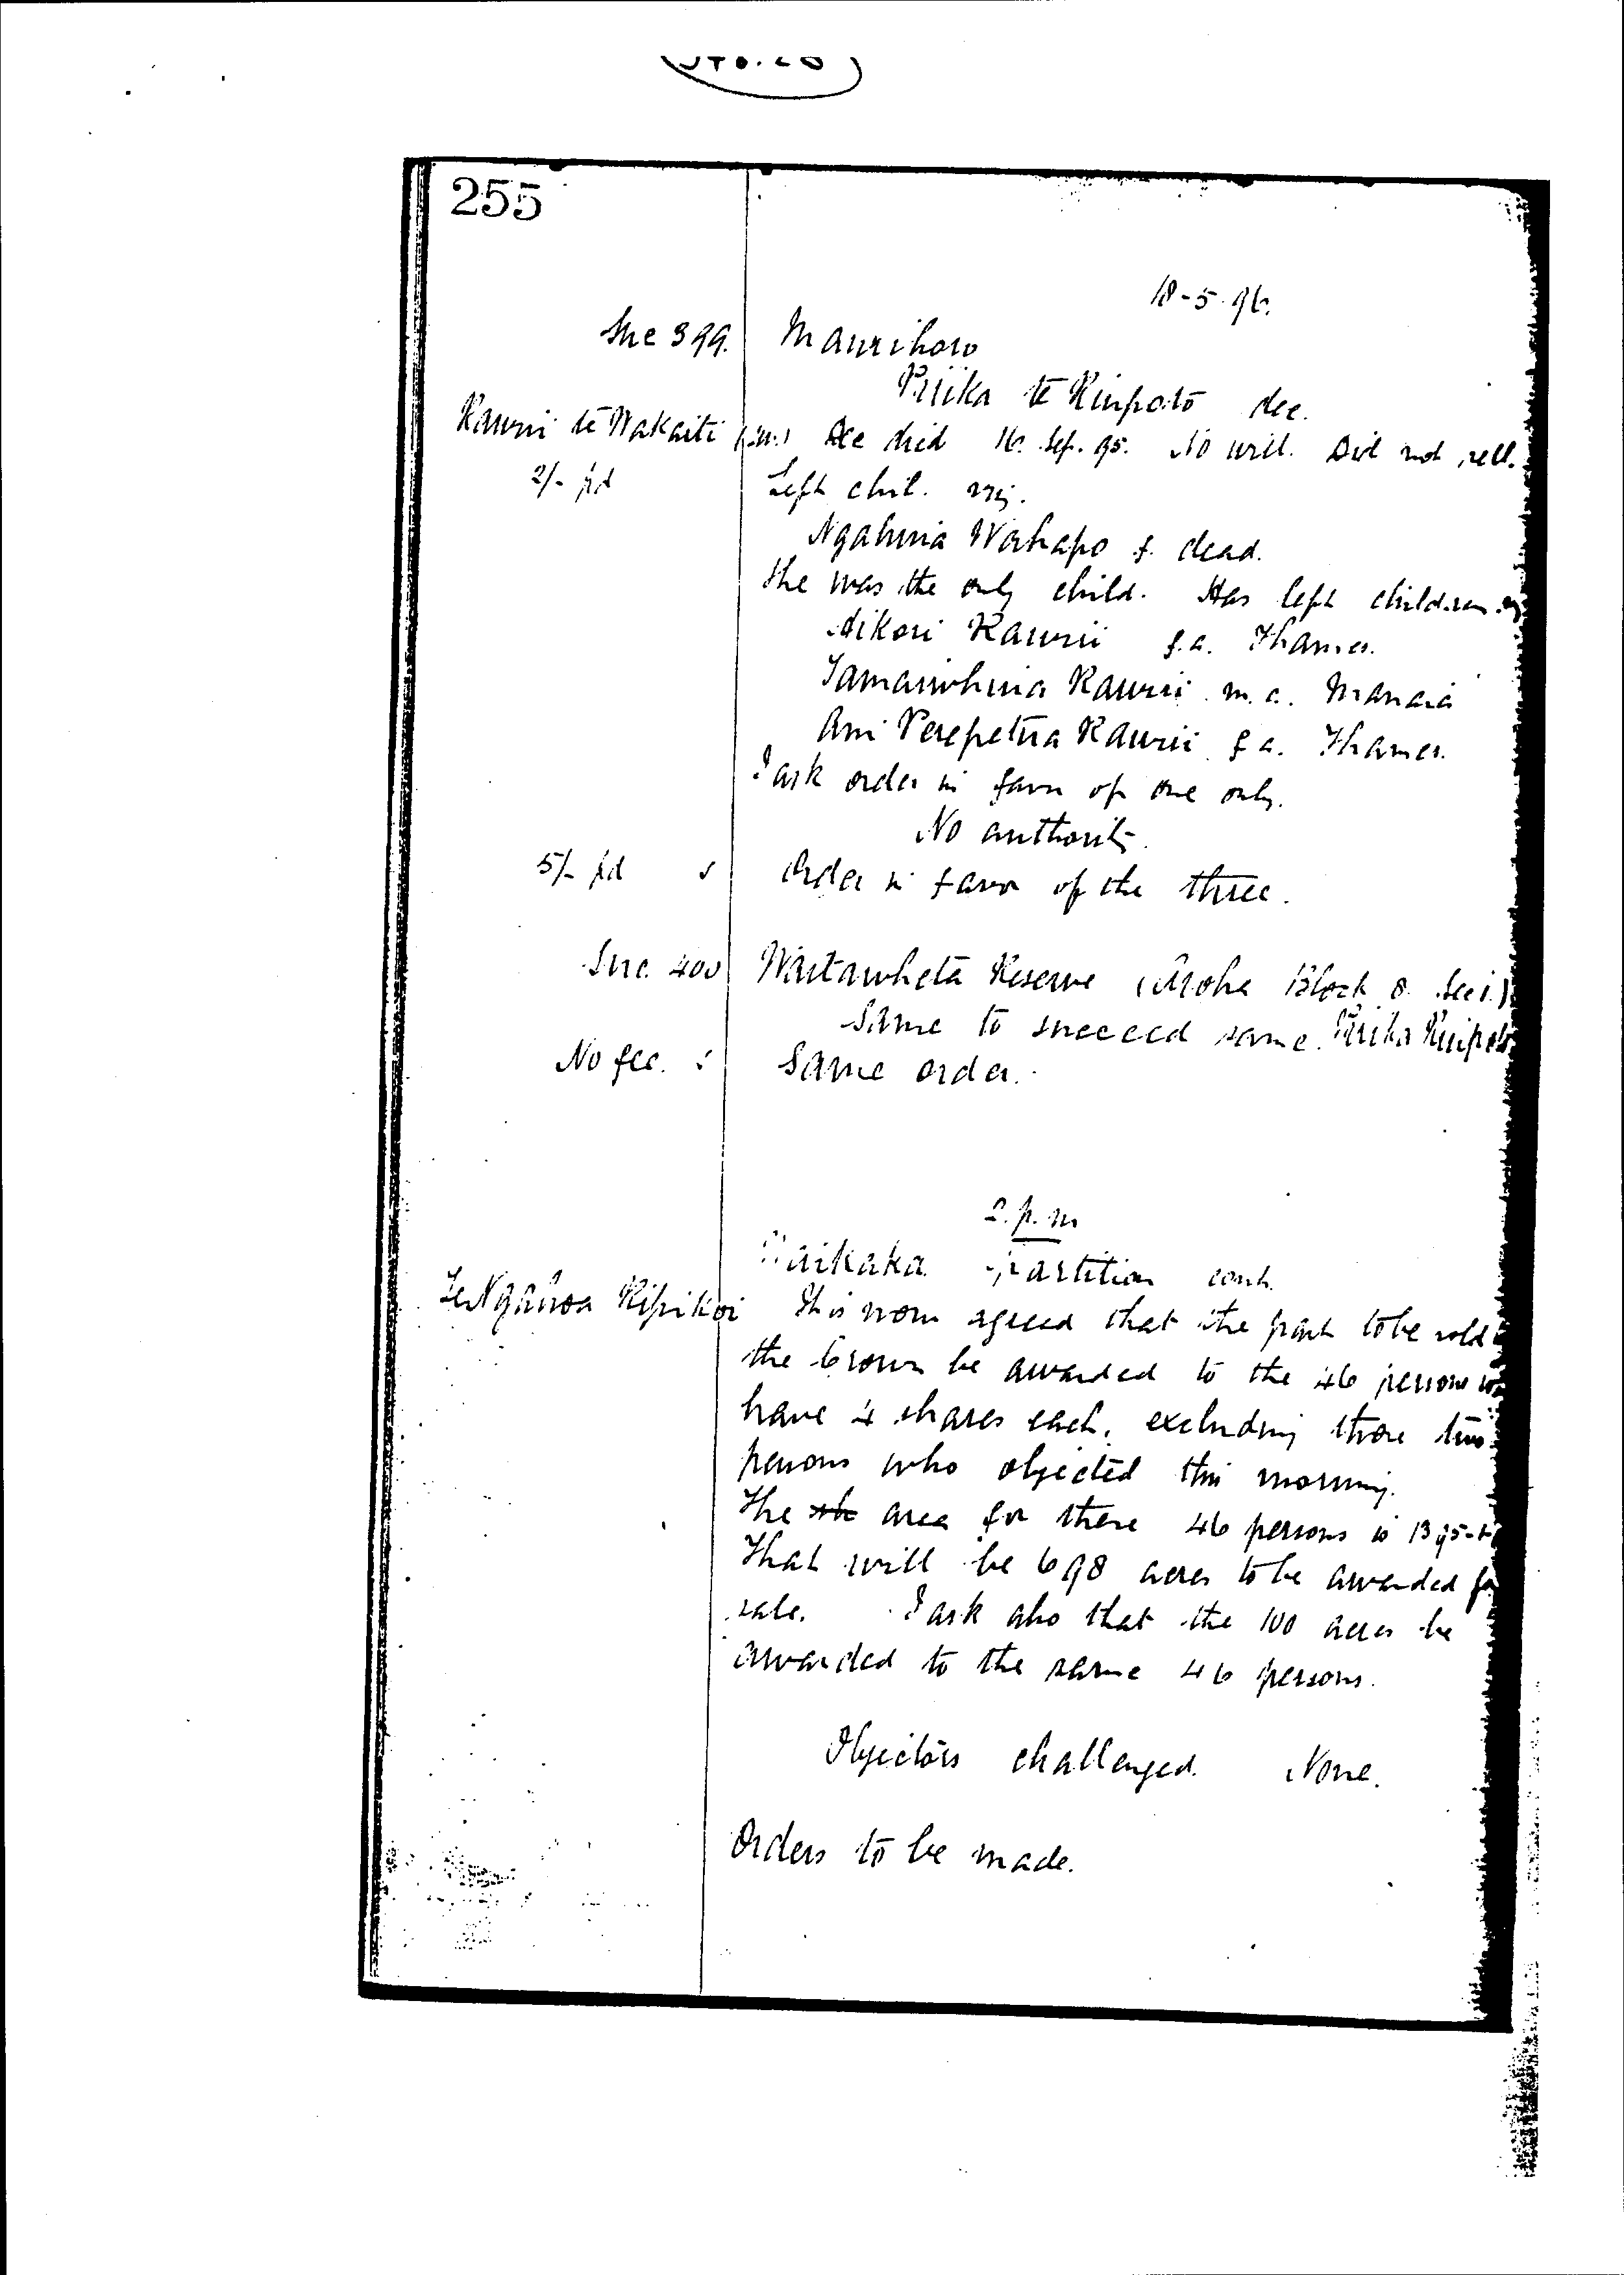 255
18-5-96.
Suc 399. Maurihoro
Piiika te Ruipoto dec.
Rawiri te Wakaiti (sw.) Dec died 16. Sep. 95. No will. Did not sell.
2/- pd Left chil. viz.
Ngahuia Wahapo f. dead.
She was the only child. Has left children
Hikori Rawiri f.a. Thames.
Tamaiwhiua Rawiri m.a. Manaia
Ani Perepetua Rawiri f.a. Thames.
I ask order in favor of one only.
No authority.
5/- pd Order in favor of the three.
Suc. 400 Waitawheta Reserve (Aroha Block 8. Sec 1.)
Same to succeed same. Ruipoto
No fee. Same order.
2.p.m
Waikaka partition cont.
Te Ngahoa Kipikoi It is now agreed that the part to be sold
the Crown be awarded to the 46 persons
have 4 shares each, excluding those two
persons who objected this morning.
The area for these 46 persons is 1395-
That will be 698 acres to be awarded for
sale. I ask also that the 100 acres be
awarded to the same 46 persons.
Objectors challenged. None.
Orders to be made.